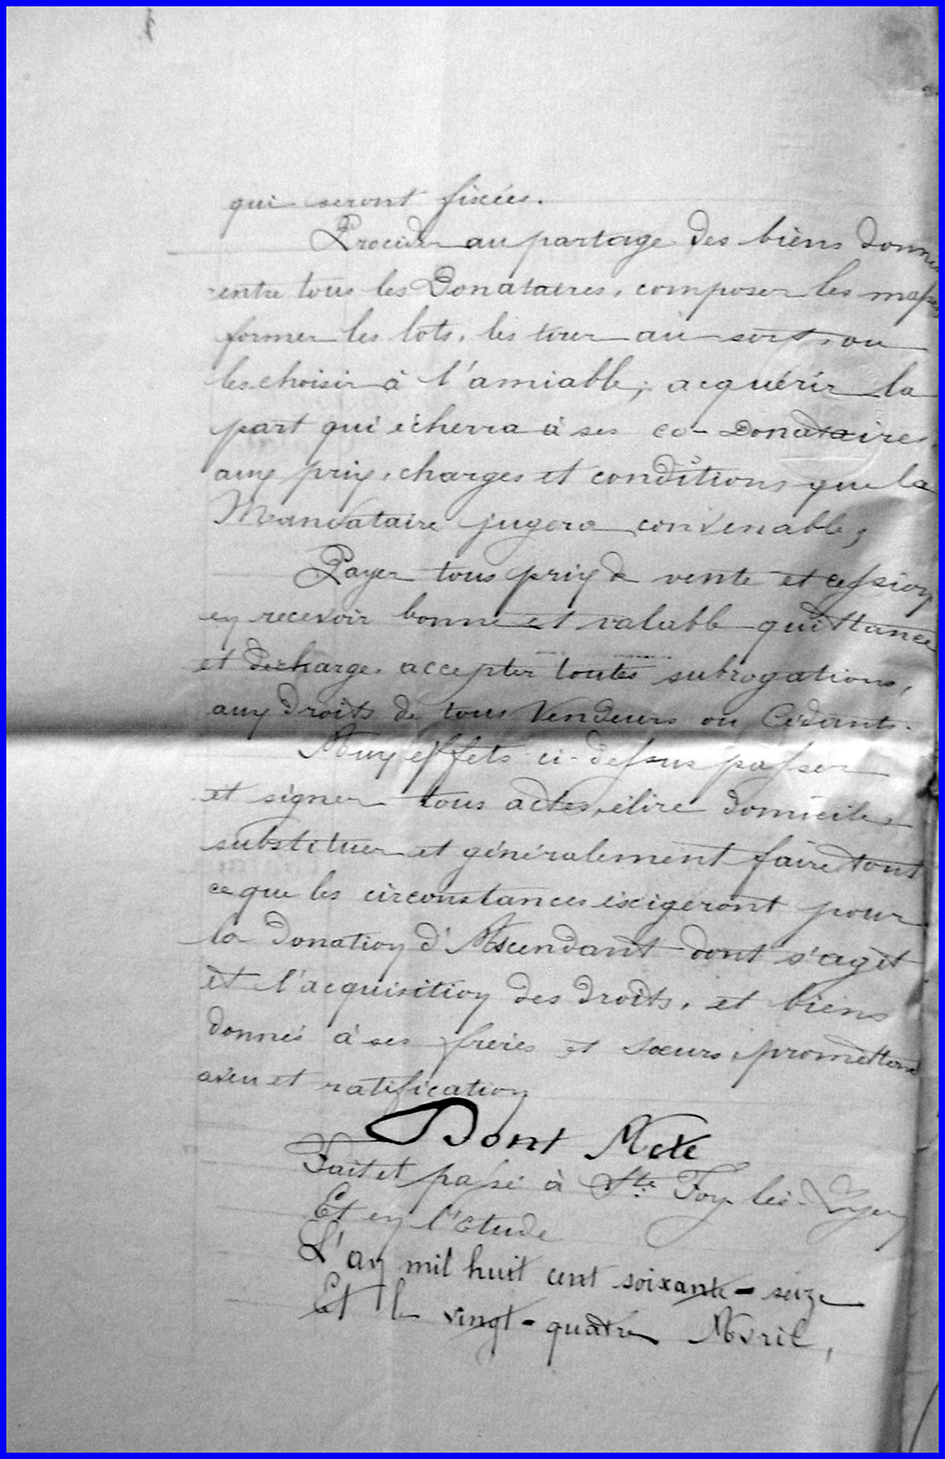 qui seront fixées.
Procéder au partage des biens donnés
entre tous les Donataires, composer les masses
former les lots, les tirer au sort, ou
les choisir à l'amiable, acquérir la
part qui écherra à ses co-Donataires,
aux prix, charges et conditions que la
Mandataire jugera convenable;
Payer tous prix de vente et cession
en recevoir bonne et valable quittance
et décharge, accepter toutes subrogations,
aux droits de tous Vendeurs ou Cédants.
Aux effets ci-dessus passer
et signer tous actes, élire domicile,
substituer et généralement faire tout
ce que les circonstances exigeront pour
la Donation d'Ascendant dont s'agit
et l'acquisition des droits, et biens
donnés à ses frères et sœurs, promettant
aveu et ratification
Dont Acte
Fait et passé à Ste Foy les-Lyon
Et en l'Etude
L'an mil huit cent soixante-seize
Et le vingt-quatre Avril,